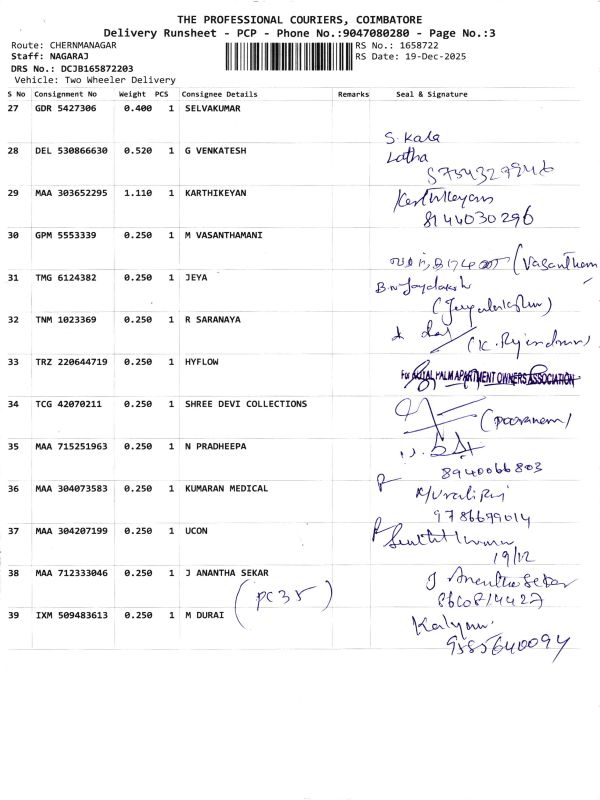 THE PROFESSIONAL COURIERS, COIMBATORE
Delivery Runsheet - PCP - Phone No.:9047080280 - Page No.:3
Route: CHERNMANAGAR RS No.: 1658722
Staff: NAGARAJ RS Date: 19-Dec-2025
DRS No.: DCJB165872203
Vehicle: Two Wheeler Delivery
S No Consignment No Weight PCS Consignee Details Remarks Seal & Signature
27 GDR 5427306 0.400 1 SELVAKUMAR
S. Kala
28 DEL 530866630 0.520 1 G VENKATESH Latha
29 MAA 303652295 1.110 1 KARTHIKEYAN Karthikeyan
8144030296
30 GPM 5553339 0.250 1 M VASANTHAMANI
31 TMG 6124382 0.250 1 JEYA
32 TNM 1023369 0.250 1 R SARANAYA
33 TRZ 220644719 0.250 1 HYFLOW
For ROYAL PALM APARTMENT OWNERS ASSOCIATION
34 TCG 42070211 0.250 1 SHREE DEVI COLLECTIONS
35 MAA 715251963 0.250 1 N PRADHEEPA
8940066803
36 MAA 304073583 0.250 1 KUMARAN MEDICAL
9786699014
37 MAA 304207199 0.250 1 UCON
19/12
38 MAA 712333046 0.250 1 J ANANTHA SEKAR J Anantha Sekar
39 IXM 509483613 0.250 1 M DURAI